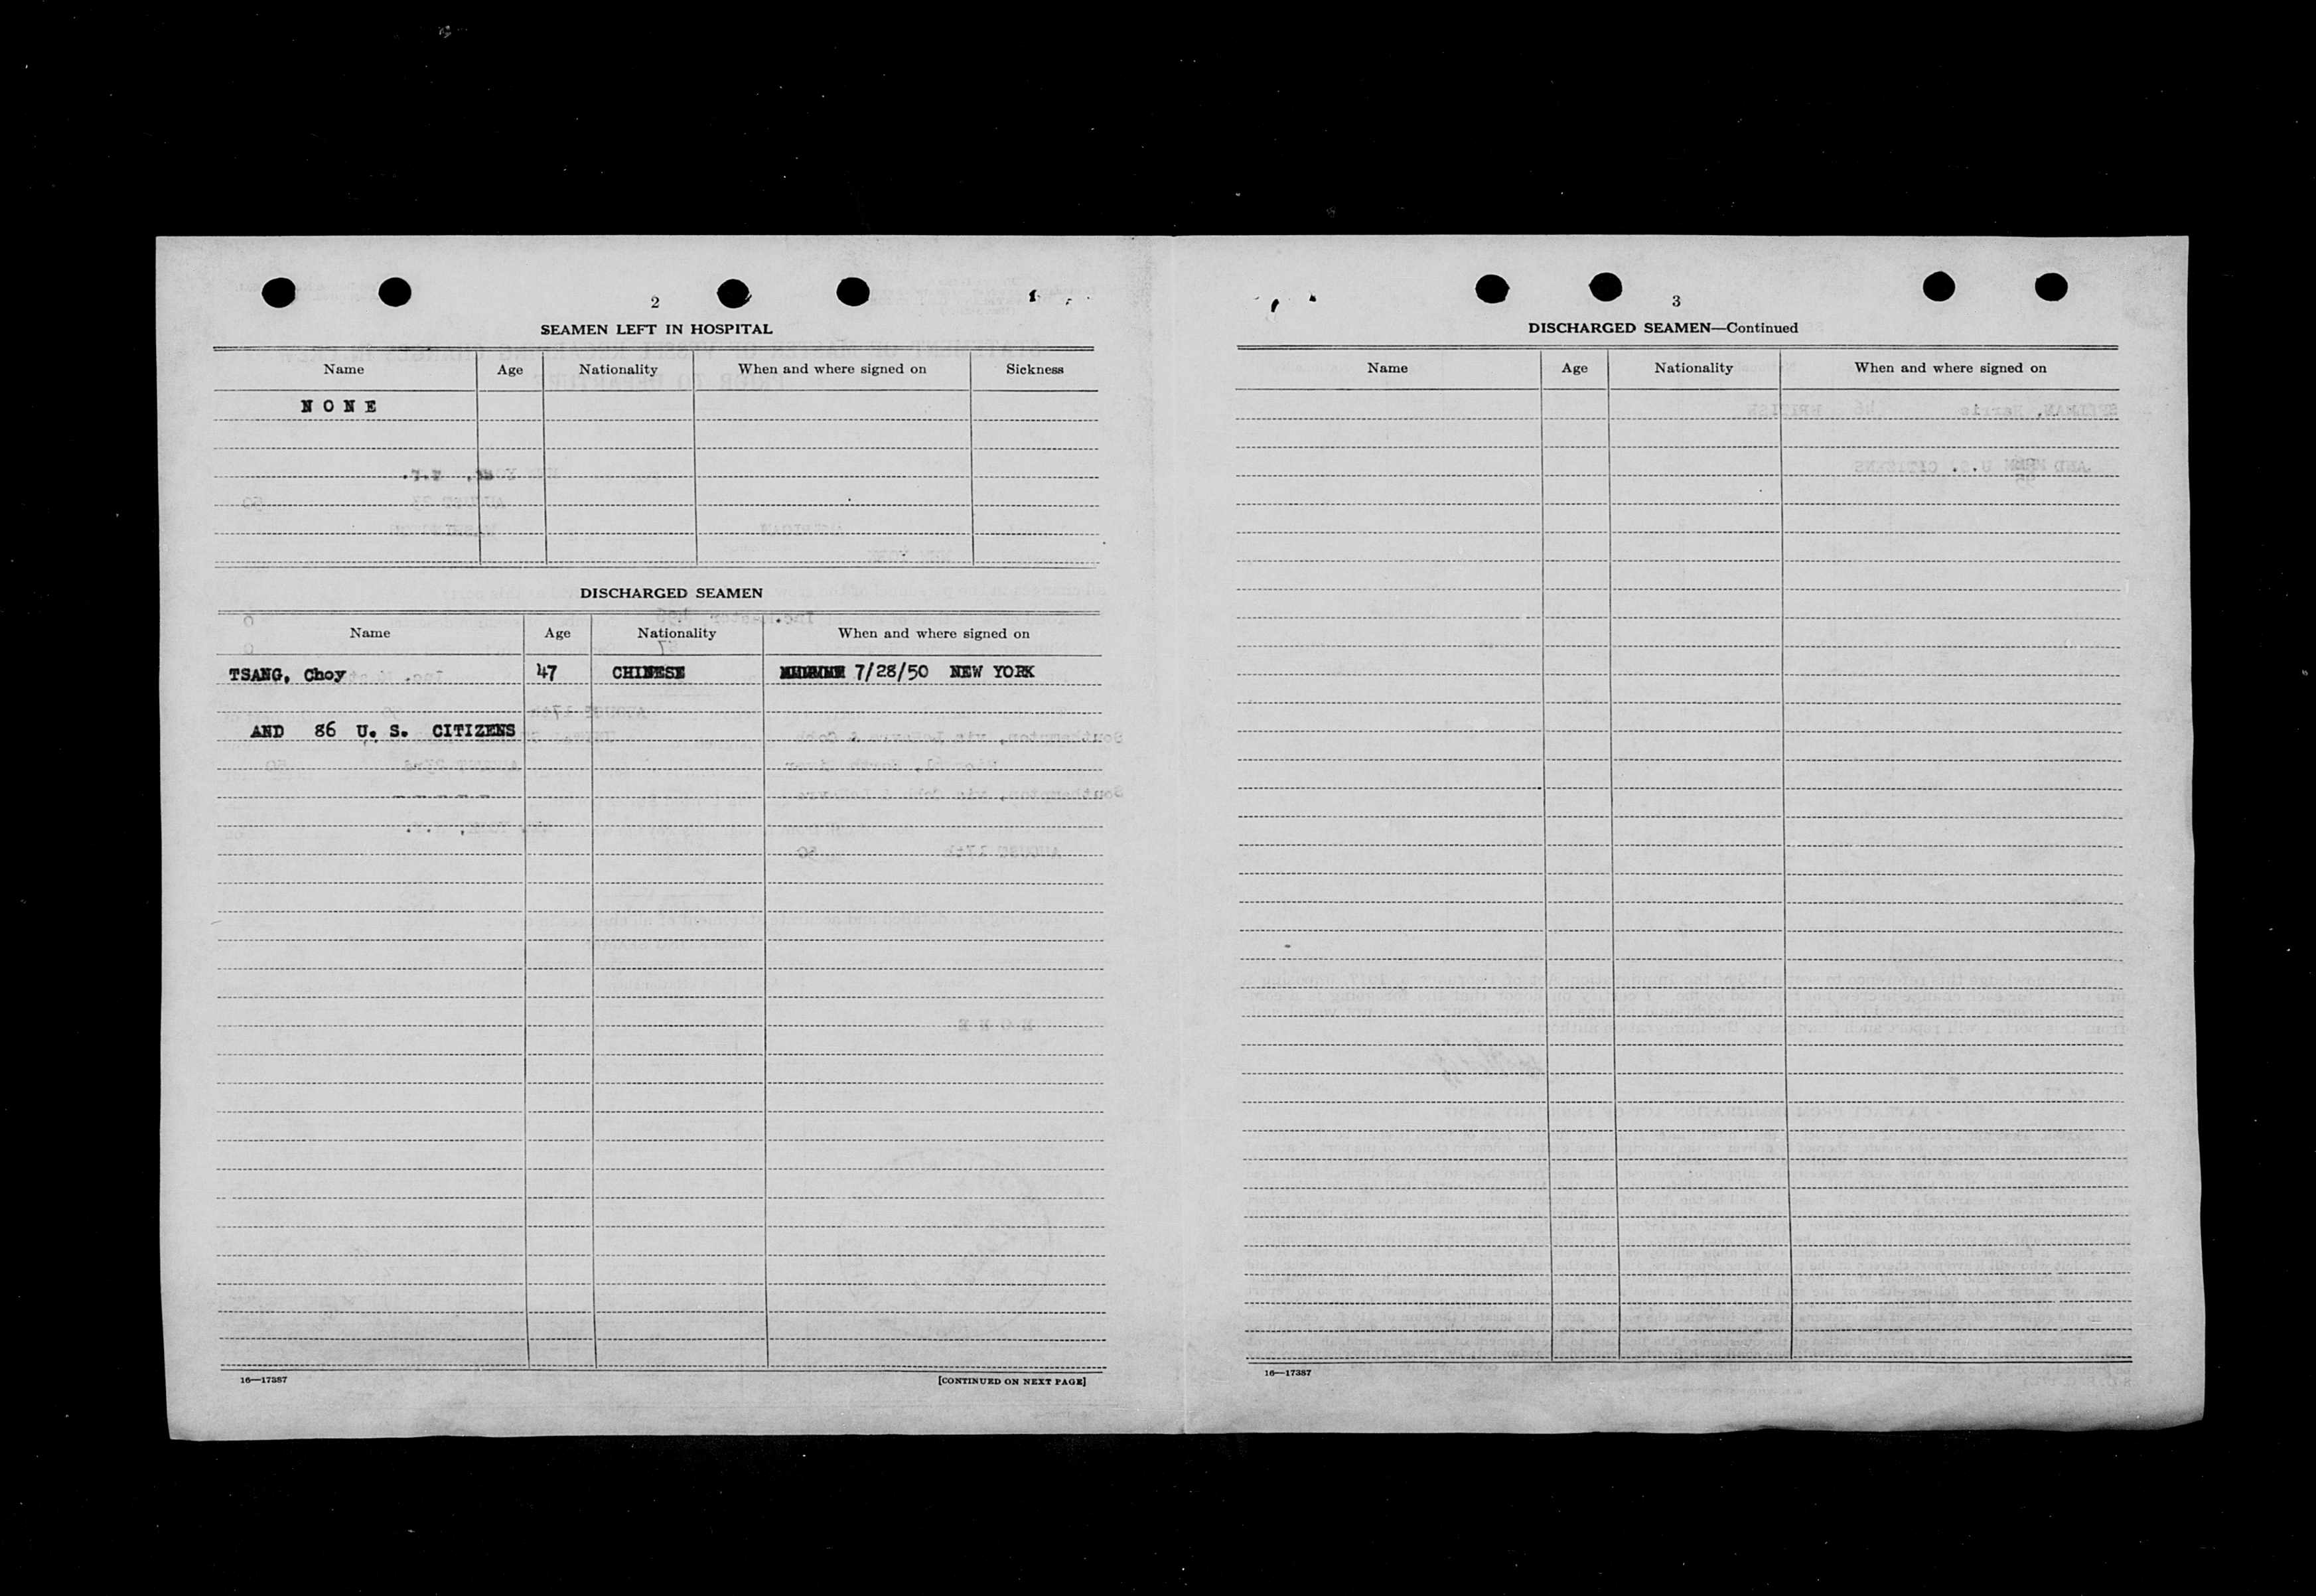 2
SEAMEN LEFT IN HOSPITAL
Name Age Nationality When and where signed on Sickness
NONE
DISCHARGED SEAMEN
Name Age Nationality When and where signed on
TSANG, Choy 47 CHINESE 7/28/50 NEW YORK
AND 86 U. S. CITIZENS
16—17387 [CONTINUED ON NEXT PAGE]
3
DISCHARGED SEAMEN—Continued
Name Age Nationality When and where signed on
16—17387